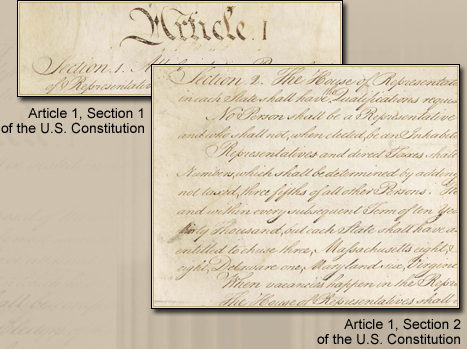 Article. I
Section. 1. All
of Representati
Article 1, Section 1
of the U.S. Constitution
Section 2. The House of Representati
in each State shall have the Qualifications requis
No Person shall be a Representative
and who shall not, when elected, be an Inhabita
Representatives and direct Taxes shall
Numbers, which shall be determined by adding
not taxed, three fifths of all other Persons.
and within every subsequent Term of ten Yea
thirty Thousand, but each State shall have a
entitled to chuse three, Massachusetts eight,
eight, Delaware one, Maryland six, Virginia
When vacancies happen in the Repre
The House of Representatives shall
Article 1, Section 2
of the U.S. Constitution